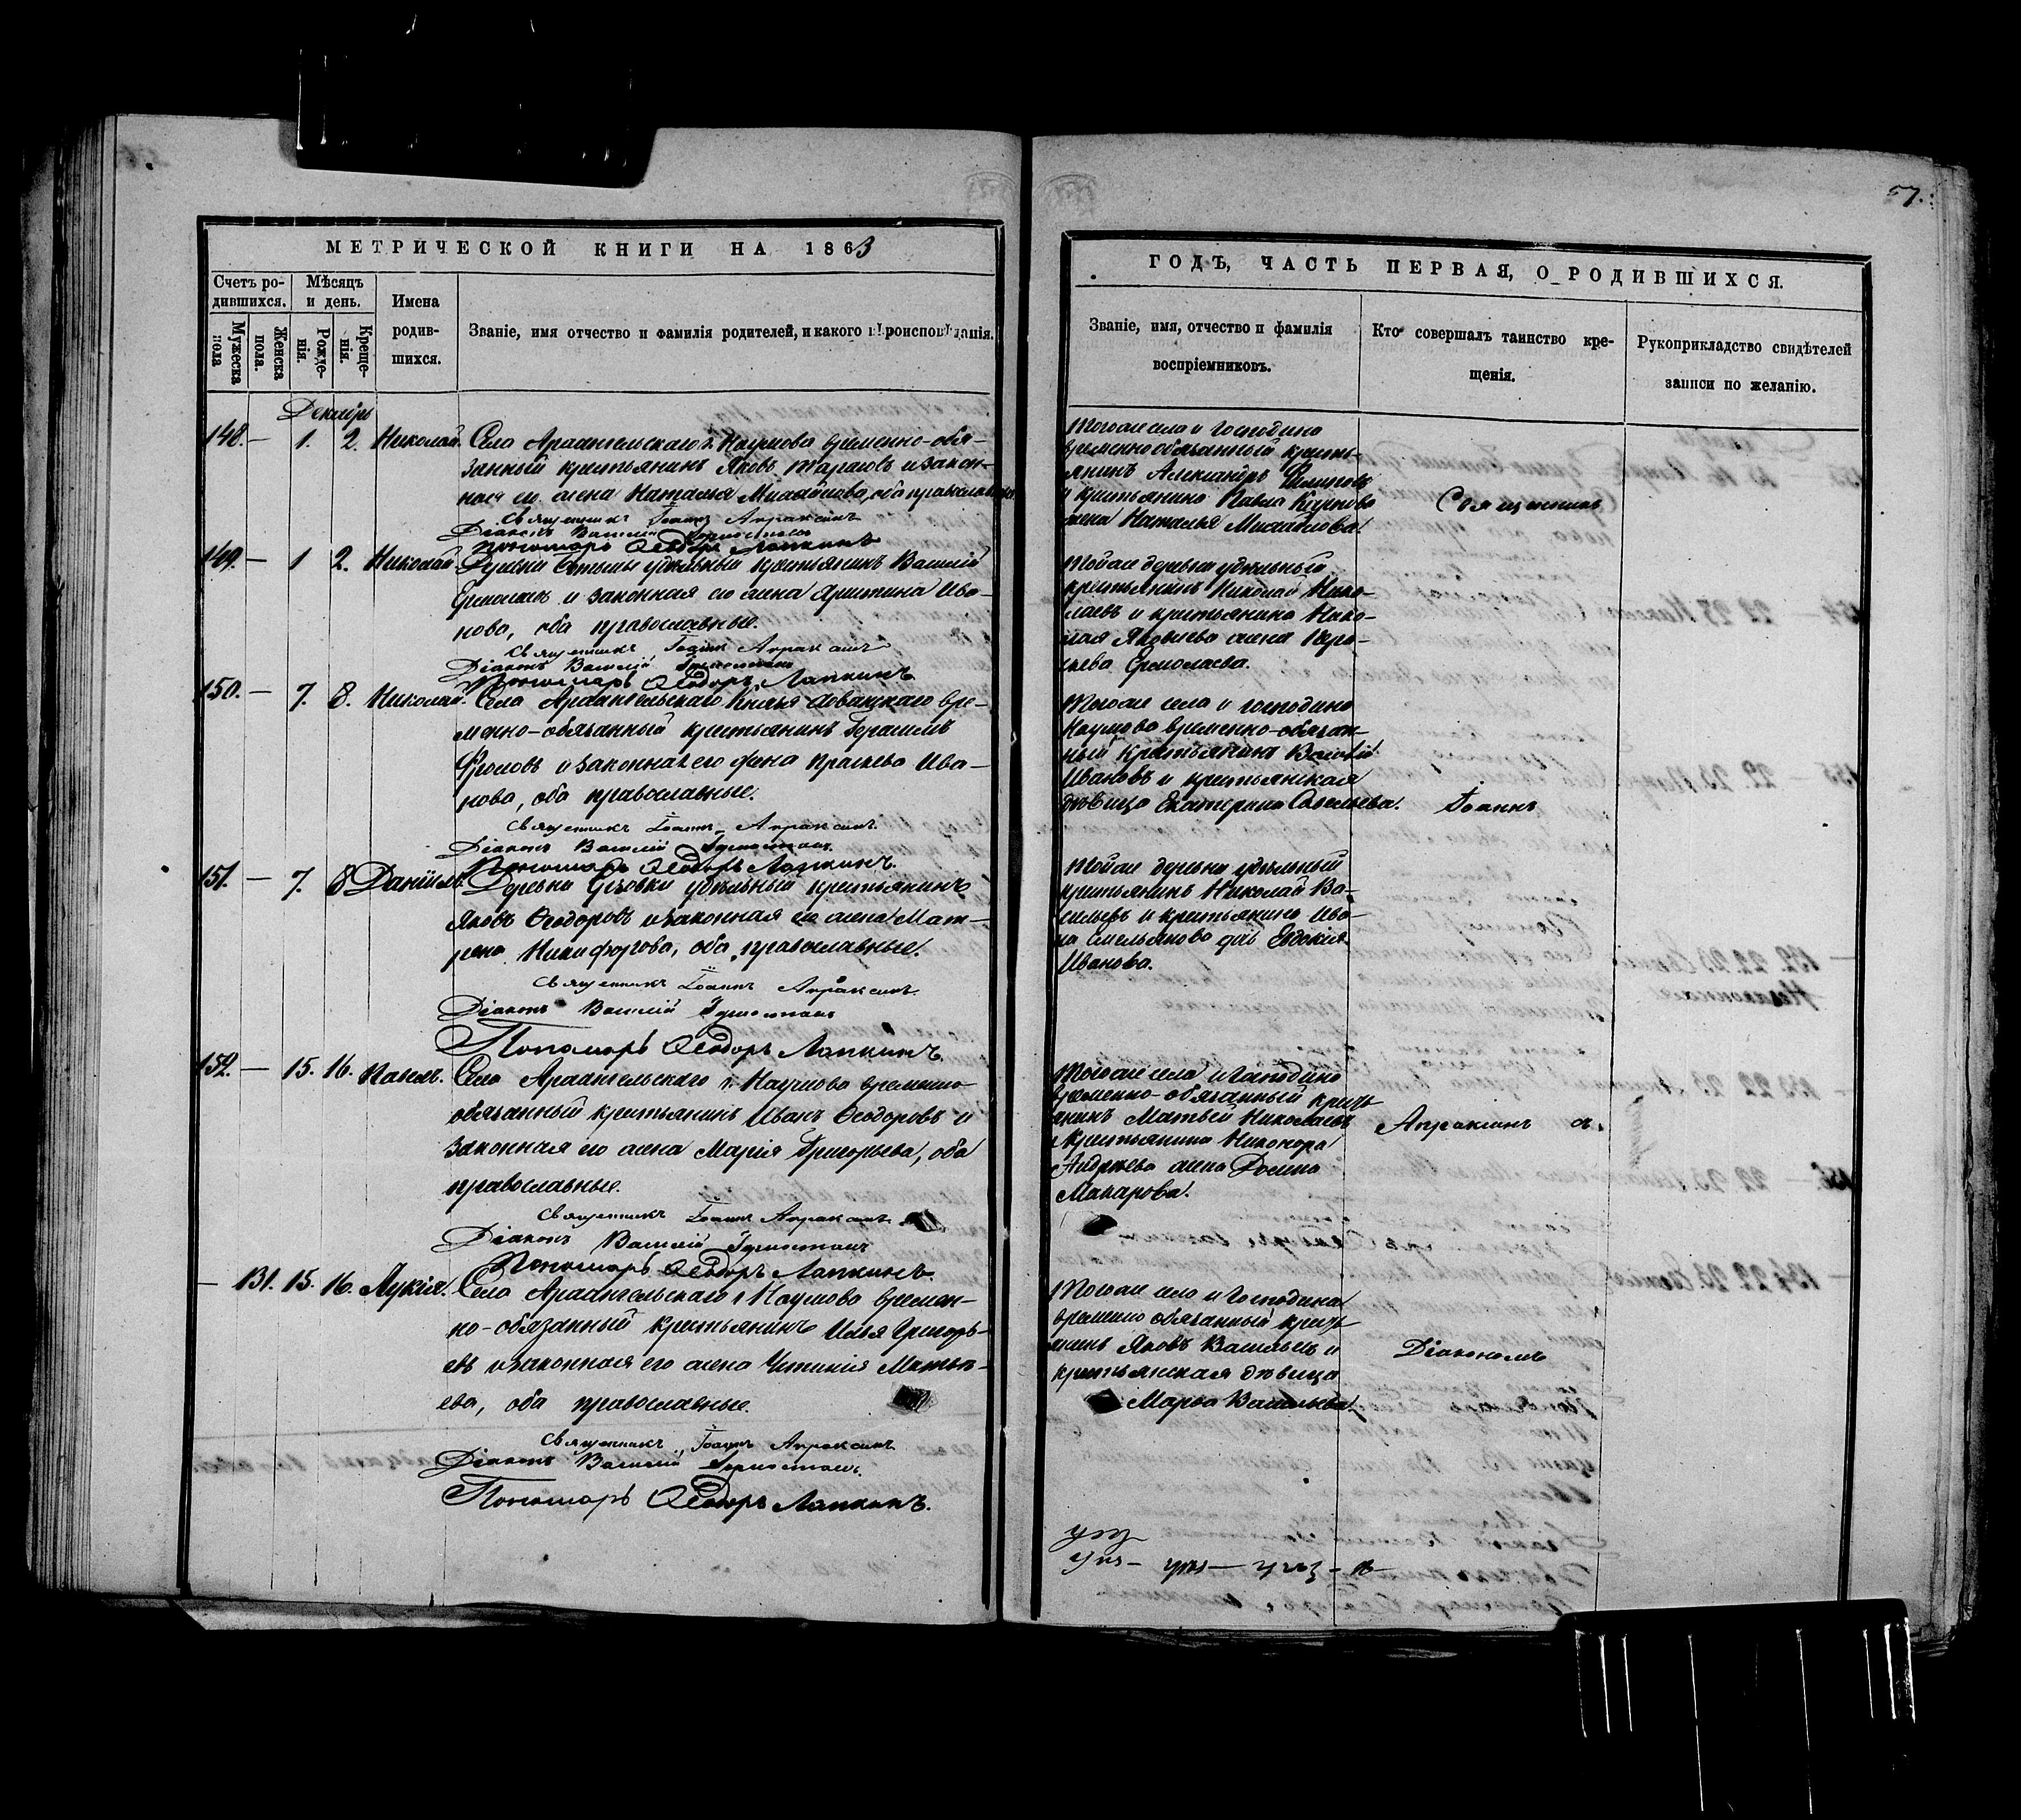 57.
МЕТРИЧЕСКОЙ КНИГИ НА 1863
Счетъ ро-
дившихся.
Мужеска пола
Женска пола.
Мѣсяцъ
и день.
Рожде-
нія.
Креще-
нія.
Имена
родив-
шихся.
Званіе, имя отчество и фамилія родителей, и какого вѣроисповѣданія.
Декабрь
148. — 1. 2. Николай. Села Архангельскаго г. Наумова временно-обя-
занный крестьянинъ Яковъ Тарасовъ и закон-
ная его жена Наталья Михайлова, оба православные.
Священникъ Іоаннъ Апраксинъ
Діаконъ Василій
Пономарь Ѳеодоръ Лапкинъ
149. — 1 2. Николай. Деревни удѣльный крестьянинъ Василій
Ермолаевъ и законная его жена Ива-
нова, оба православные.
Священникъ Іоаннъ Апраксинъ
Діаконъ Василій
Пономарь Ѳеодоръ Лапкинъ
150. — 7. 8. Николай. Села Архангельскаго Князя Хованскаго вре-
менно-обязанный крестьянинъ Герасимъ
Фроловъ и законная его жена Ива-
нова, оба православные.
Священникъ Іоаннъ Апраксинъ.
Діаконъ Василій
Пономарь Ѳеодоръ Лапкинъ.
151. — 7. 8 Даніилъ. Деревни удѣльный крестьянинъ
Яковъ Ѳеодоровъ и законная его жена Мат-
рена Никифорова, оба православные.
Священникъ Іоаннъ Апраксинъ.
Діаконъ Василій
Пономарь Ѳеодоръ Лапкинъ.
152. — 15. 16. Павелъ. Села Архангельскаго г. Наумова временно
обязанный крестьянинъ Иванъ Ѳеодоровъ и
законная его жена Марія Григорьева, оба
православные.
Священникъ Іоаннъ Апраксинъ
Діаконъ Василій
Пономарь Ѳеодоръ Лапкинъ.
— 131. 15. 16. Лукія. Села Архангельскаго г Наумова времен-
но-обязанный крестьянинъ Илья Григорь-
евъ и законная его жена Устинія Матвѣ-
ева, оба православные.
Священникъ Іоаннъ Апраксинъ
Діаконъ Василій
Пономарь Ѳеодоръ Лапкинъ.
ГОДЪ, ЧАСТЬ ПЕРВАЯ, О РОДИВШИХСЯ.
Званіе, имя, отчество и фамилія
воспріемниковъ.
Кто совершалъ таинство кре-
щенія.
Рукоприкладство свидѣтелей
записи по желанію.
Тогоже села и господина
временнообязанный кресть-
янинъ Александръ Филиповъ
и крестьянина Павла
жена Наталья Михайлова.
Тойже деревни удѣльный
крестьянинъ Николай Нико-
лаевъ и крестьянина Нико-
лая Яковлева жена
Ермолаева.
Тогоже села и господина
Наумова временно-обязан-
ный крестьянинъ Василій
Ивановъ и крестьянская
дѣвица Екатерина Савельева.
Тойже деревни удѣльный
крестьянинъ Николай Ва-
сильевъ и крестьянина Ива-
на Емельянова дочь Евдокія
Иванова.
Тогоже села и господина
временно-обязанный кресть-
янинъ Матвей Николаевъ
и крестьянина Никонора
Андреева жена
Макарова.
Тогоже села и господина
временно обязанный кресть-
янинъ Яковъ Васильевъ и
крестьянская дѣвица
Марья Васильева.
Священникъ
Іоаннъ
Апраксинъ съ
Діакономъ